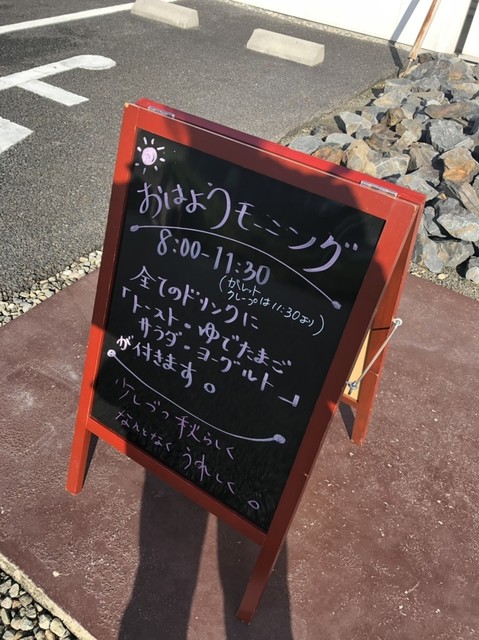 おはようモーニング
8:00-11:30
(ガレット
クレープは11:30より)
全てのドリンクに
「トースト・ゆでたまご
サラダ・ヨーグルト」
が付きます。
少しづつ秋らしく
なんとなくうれしく。